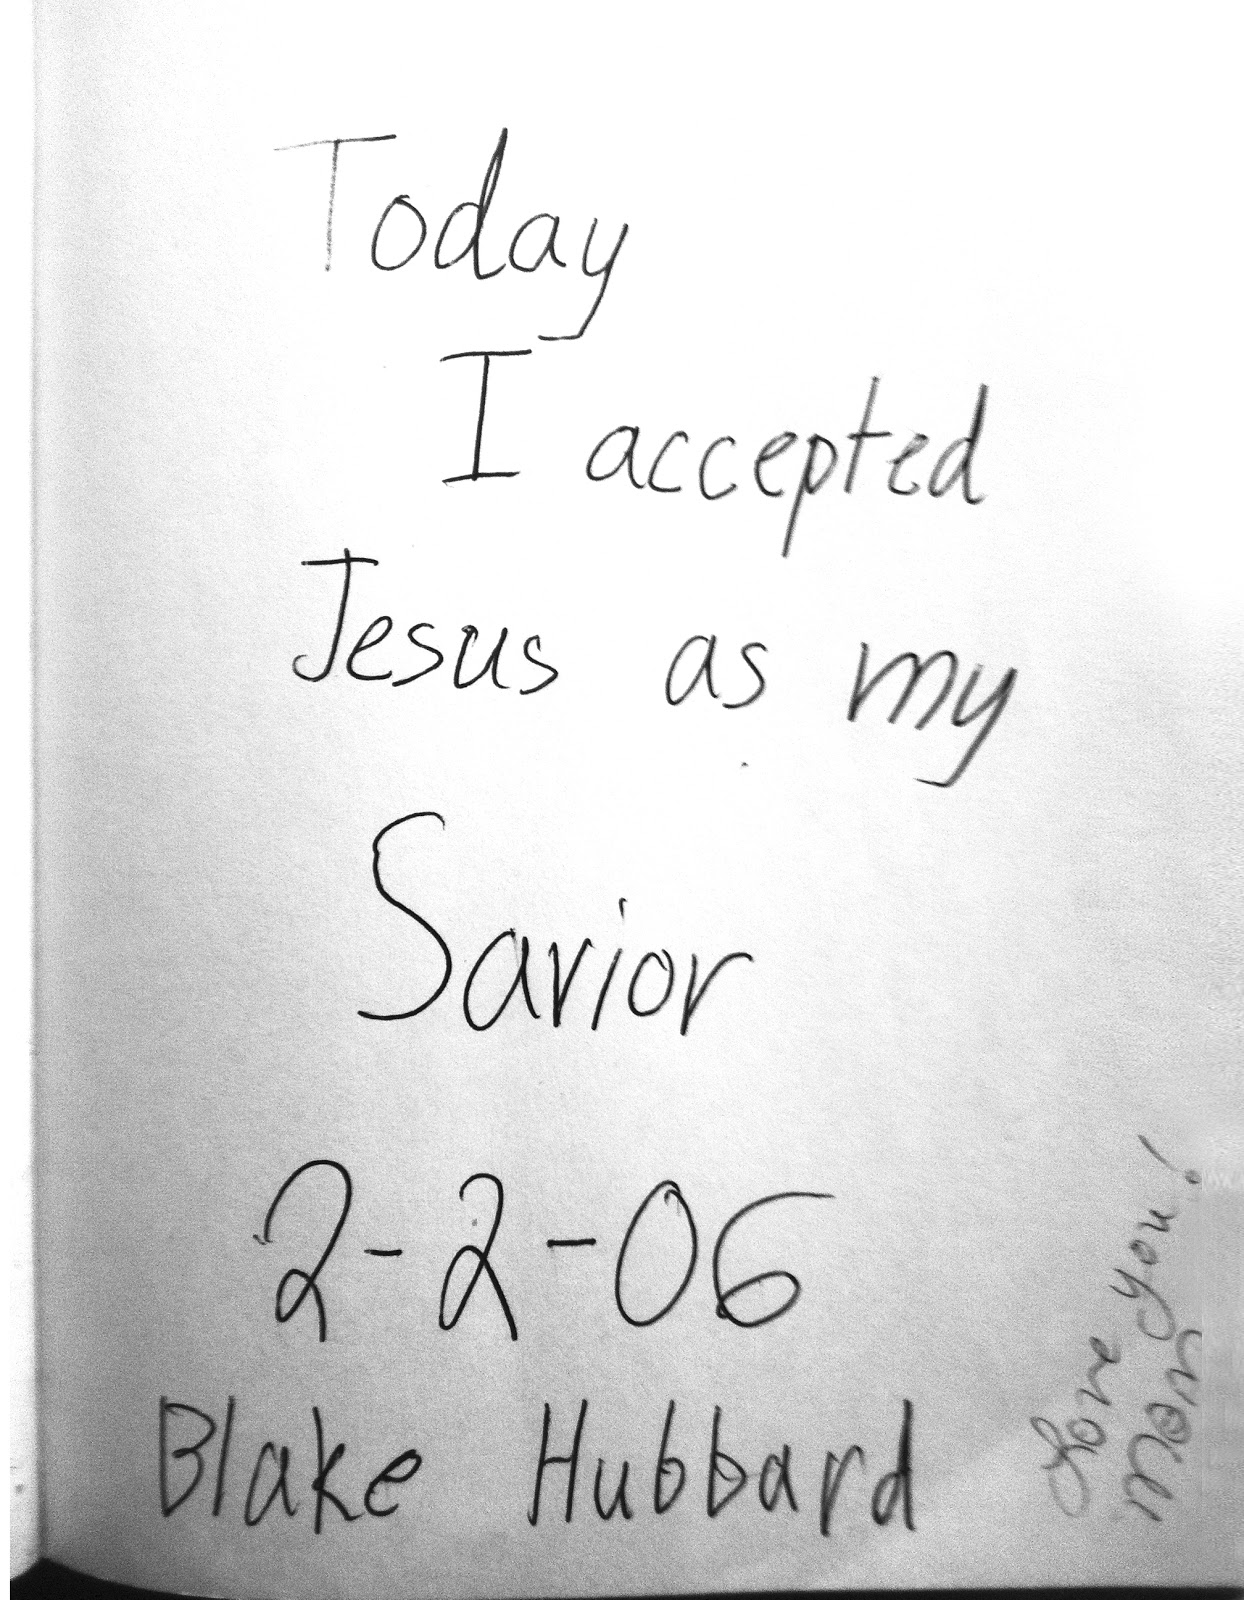 Today
I accepted
Jesus as my
Savior
2-2-06
Blake Hubbard
Love you!
Mom